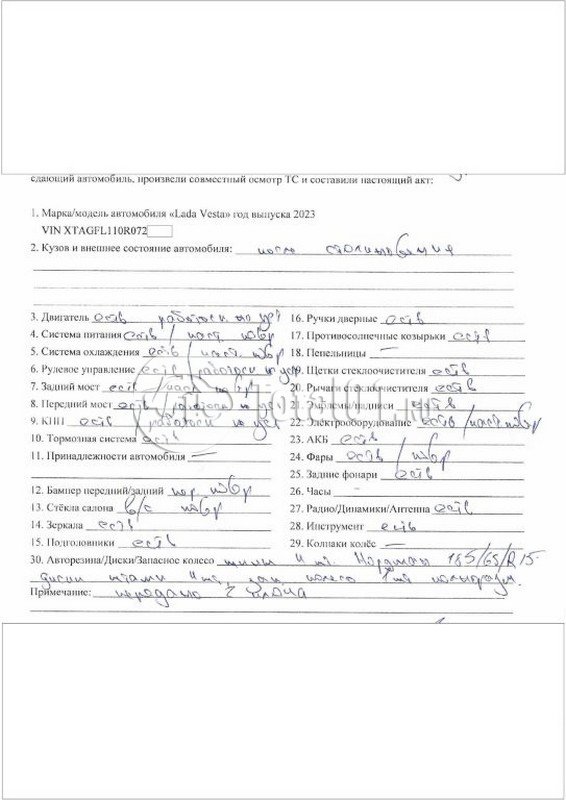 сдающий автомобиль, произвели совместный осмотр ТС и составили настоящий акт:
1. Марка/модель автомобиля «Lada Vesta» год выпуска 2023
VIN XTAGFL110R072
2. Кузов и внешнее состояние автомобиля: после столкновения
3. Двигатель есть работосп не уст
4. Система питания есть / част повр
5. Система охлаждения есть / част. повр
6. Рулевое управление есть / работосп не уст
7. Задний мост есть / част повр
8. Передний мост есть / работосп не уст
9. КПП есть работосп не уст
10. Тормозная система есть
11. Принадлежности автомобиля —
12. Бампер передний/задний пер повр
13. Стёкла салона в/с повр
14. Зеркала есть
15. Подголовники есть
16. Ручки дверные есть
17. Противосолнечные козырьки есть
18. Пепельницы —
19. Щетки стеклоочистителя есть
20. Рычаги стеклоочистителя есть
21. Эмблемы/надписи есть
22. Электрооборудование есть / част повр
23. АКБ есть
24. Фары есть / повр
25. Задние фонари есть
26. Часы —
27. Радио/Динамики/Антенна есть
28. Инструмент есть
29. Колпаки колёс —
30. Авторезина/Диски/Запасное колесо шины 4 шт. Нордман 185/65/R15
диски штамп 4 шт, зап колесо 1 шт
Примечание: передано 2 ключа